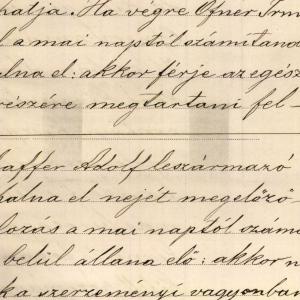 hatja. Ha végre Ofner Irm
l a mai naptól számítand
alna el: akkor férje az egész
részére megtartani fel-
haffer Adolf leszármazó
halna el nejét megelőző-
lozás a mai naptól számí
belül állana elő: akkor n
k a szerzeményi vagyonban